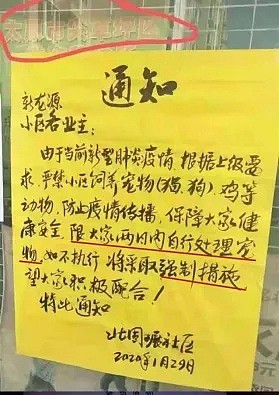 通知
新龙源
小区各业主：
由于当前新型肺炎疫情，根据上级要
求，严禁小区饲养宠物(猫，狗)，鸡等
动物，防止疫情传播，保障大家健
康安全，限大家两日内自行处理宠
物，如不执行 将采取强制措施
望大家积极配合！
特此通知
社区
2020年1月29日